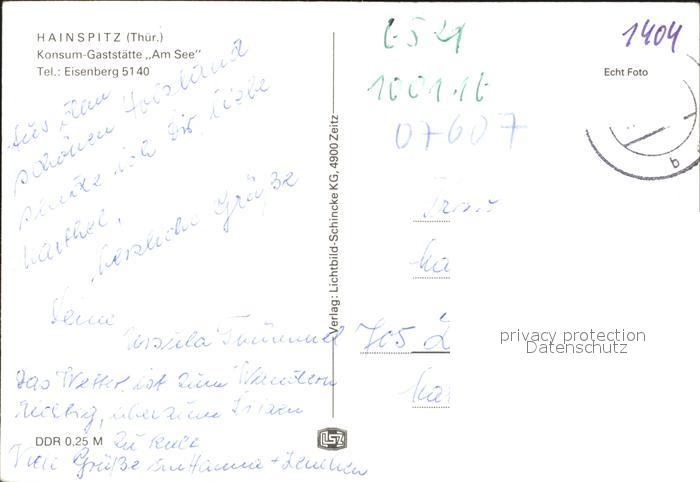 HAINSPITZ (Thür.)
Konsum-Gaststätte „Am See"
Tel.: Eisenberg 5140
Aus dem
schönen Holzland
sende ich Dir, liebe
herzliche Grüße
Deine
Ursula
Das Wetter ist zum Wandern
richtig, aber zum Sitzen
zu
Viele Grüße an Hanna +
DDR 0,25 M
Verlag: Lichtbild-Schincke KG, 4900 Zeitz
LSZ
1001.16
07607
1404
Echt Foto
b
Frau
705 L
privacy protection
Datenschutz